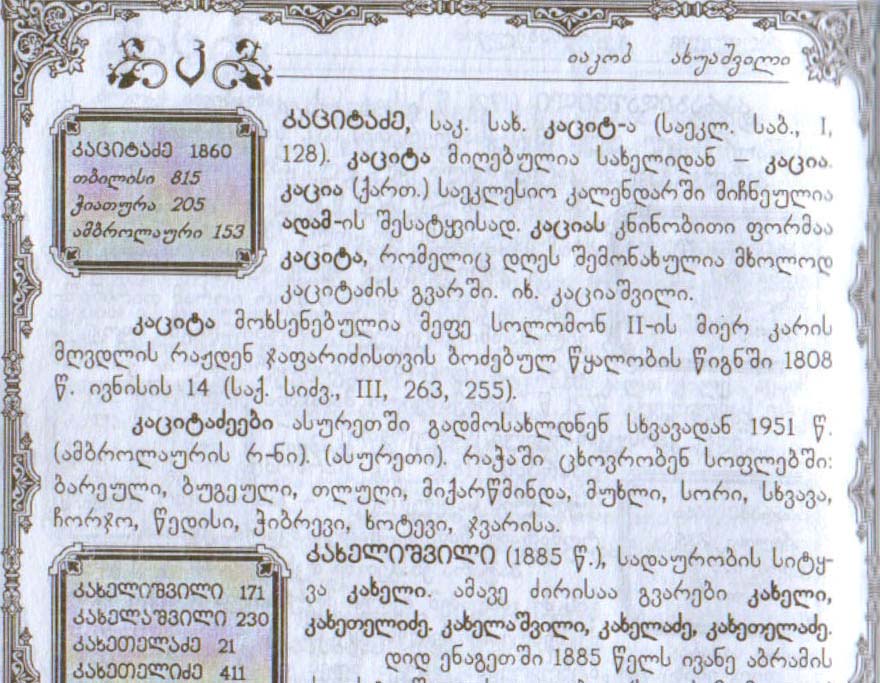 კ
იაკობ ახუაშვილი
კაციტაძე 1860
თბილისი 815
ჭიათურა 205
ამბროლაური 153
კაციტაძე, საკ. სახ. კაციტ-ა (საეკლ. საბ., I,
128). კაციტა მიღებულია სახელიდან – კაცია.
კაცია (ქართ.) საეკლესიო კალენდარში მიჩნეულია
ადამ-ის შესატყვისად. კაციას კნინობითი ფორმაა
კაციტა, რომელიც დღეს შემონახულია მხოლოდ
კაციტაძის გვარში. იხ. კაციაშვილი.
კაციტა მოხსენებულია მეფე სოლომონ II-ის მიერ კარის
მღვდლის რაჟდენ ჯაფარიძისთვის ბოძებულ წყალობის წიგნში 1808
წ. ივნისის 14 (საქ. სიძვ., III, 263, 255).
კაციტაძეები ასურეთში გადმოსახლდნენ სხვავადან 1951 წ.
(ამბროლაურის რ-ნი). (ასურეთი). რაჭაში ცხოვრობენ სოფლებში:
ბარეული, ბუგეული, თლუღი, მიქარწმინდა, მუხლი, სორი, სხვავა,
ჩორჯო, წედისი, ჭიბრევი, ხოტევი, ჯვარისა.
კახელიშვილი 171
კახელაშვილი 230
კახეთელაძე 21
კახეთელიძე 411
კახელიშვილი (1885 წ.), სადაურობის სიტყ-
ვა კახელი. ამავე ძირისაა გვარები კახელი,
კახეთელიძე. კახელაშვილი, კახელაძე, კახეთელაძე.
დიდ ენაგეთში 1885 წელს ივანე აბრამის